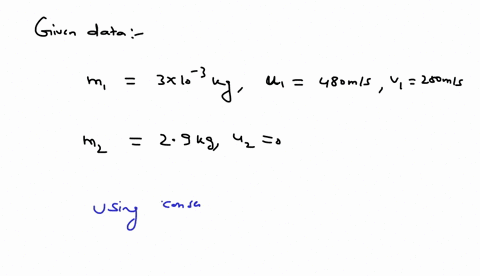 Given data:-
m₁ = 3×10⁻³ kg, u₁ = 480m/s, v₁ = 280m/s
m₂ = 2.9 kg, u₂ = 0
Using conse